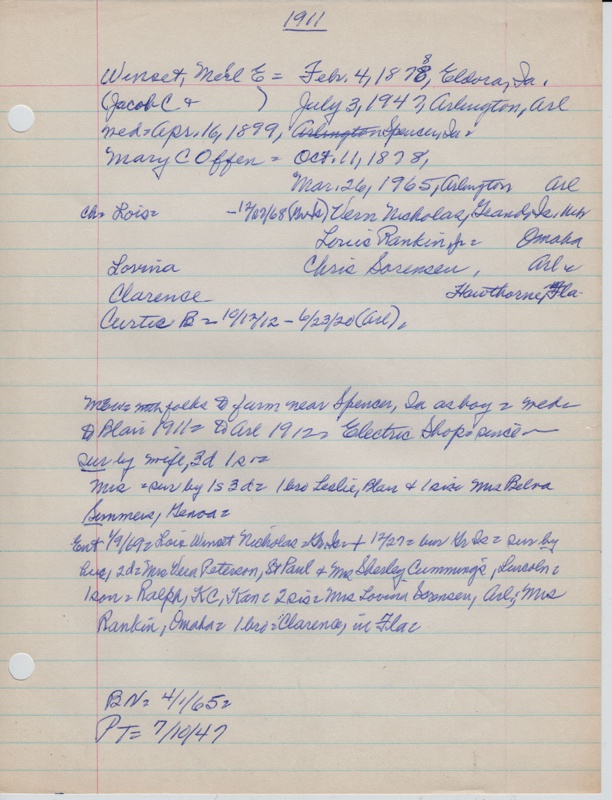 1911
Winset, Merl E = Feb. 4, 1878, Eldora, Ia.
(Jacob C + ) July 3, 1947, Arlington, Arl
med = Apr. 16, 1899, Arlington Spencer, Ia =
Mary C Offen = Oct. 11, 1878,
Mar. 26, 1965, Arlington Arl
ch = Lois = -12/27/68 Vern Nicholas, Grand Is. Nebr
Louis Rankin, Jr = Omaha
Lovina Chris Sorensen, Arl +
Clarence Hawthorne, Fla
Curtis B = 10/12/12 - 6/23/20 (Arl).
folks to farm near Spencer, Ia as boy = med =
to Blair 1911 = to Arl 1912 = Electric Shop = since
sur by wife, 3d 1s =
Mrs = sur by 1s 3d = 1 bro Leslie, Blair + 1 sis = Mrs Belva
Simmers, Genoa =
Ent 1/9/69 = Lois Winset Nicholas = Gr Is = + 12/27 = bur Gr Is = sur by
hus, 2d = Mrs Vera Peterson, St Paul + Mrs Sherley Cummings, Lincoln =
1 son = Ralph, KC, Kan = 2 sis = Mrs Lovina Sorensen, Arl; Mrs
Rankin, Omaha = 1 bro = Clarence, in Fla =
BN = 4/1/65 =
PT = 7/10/47